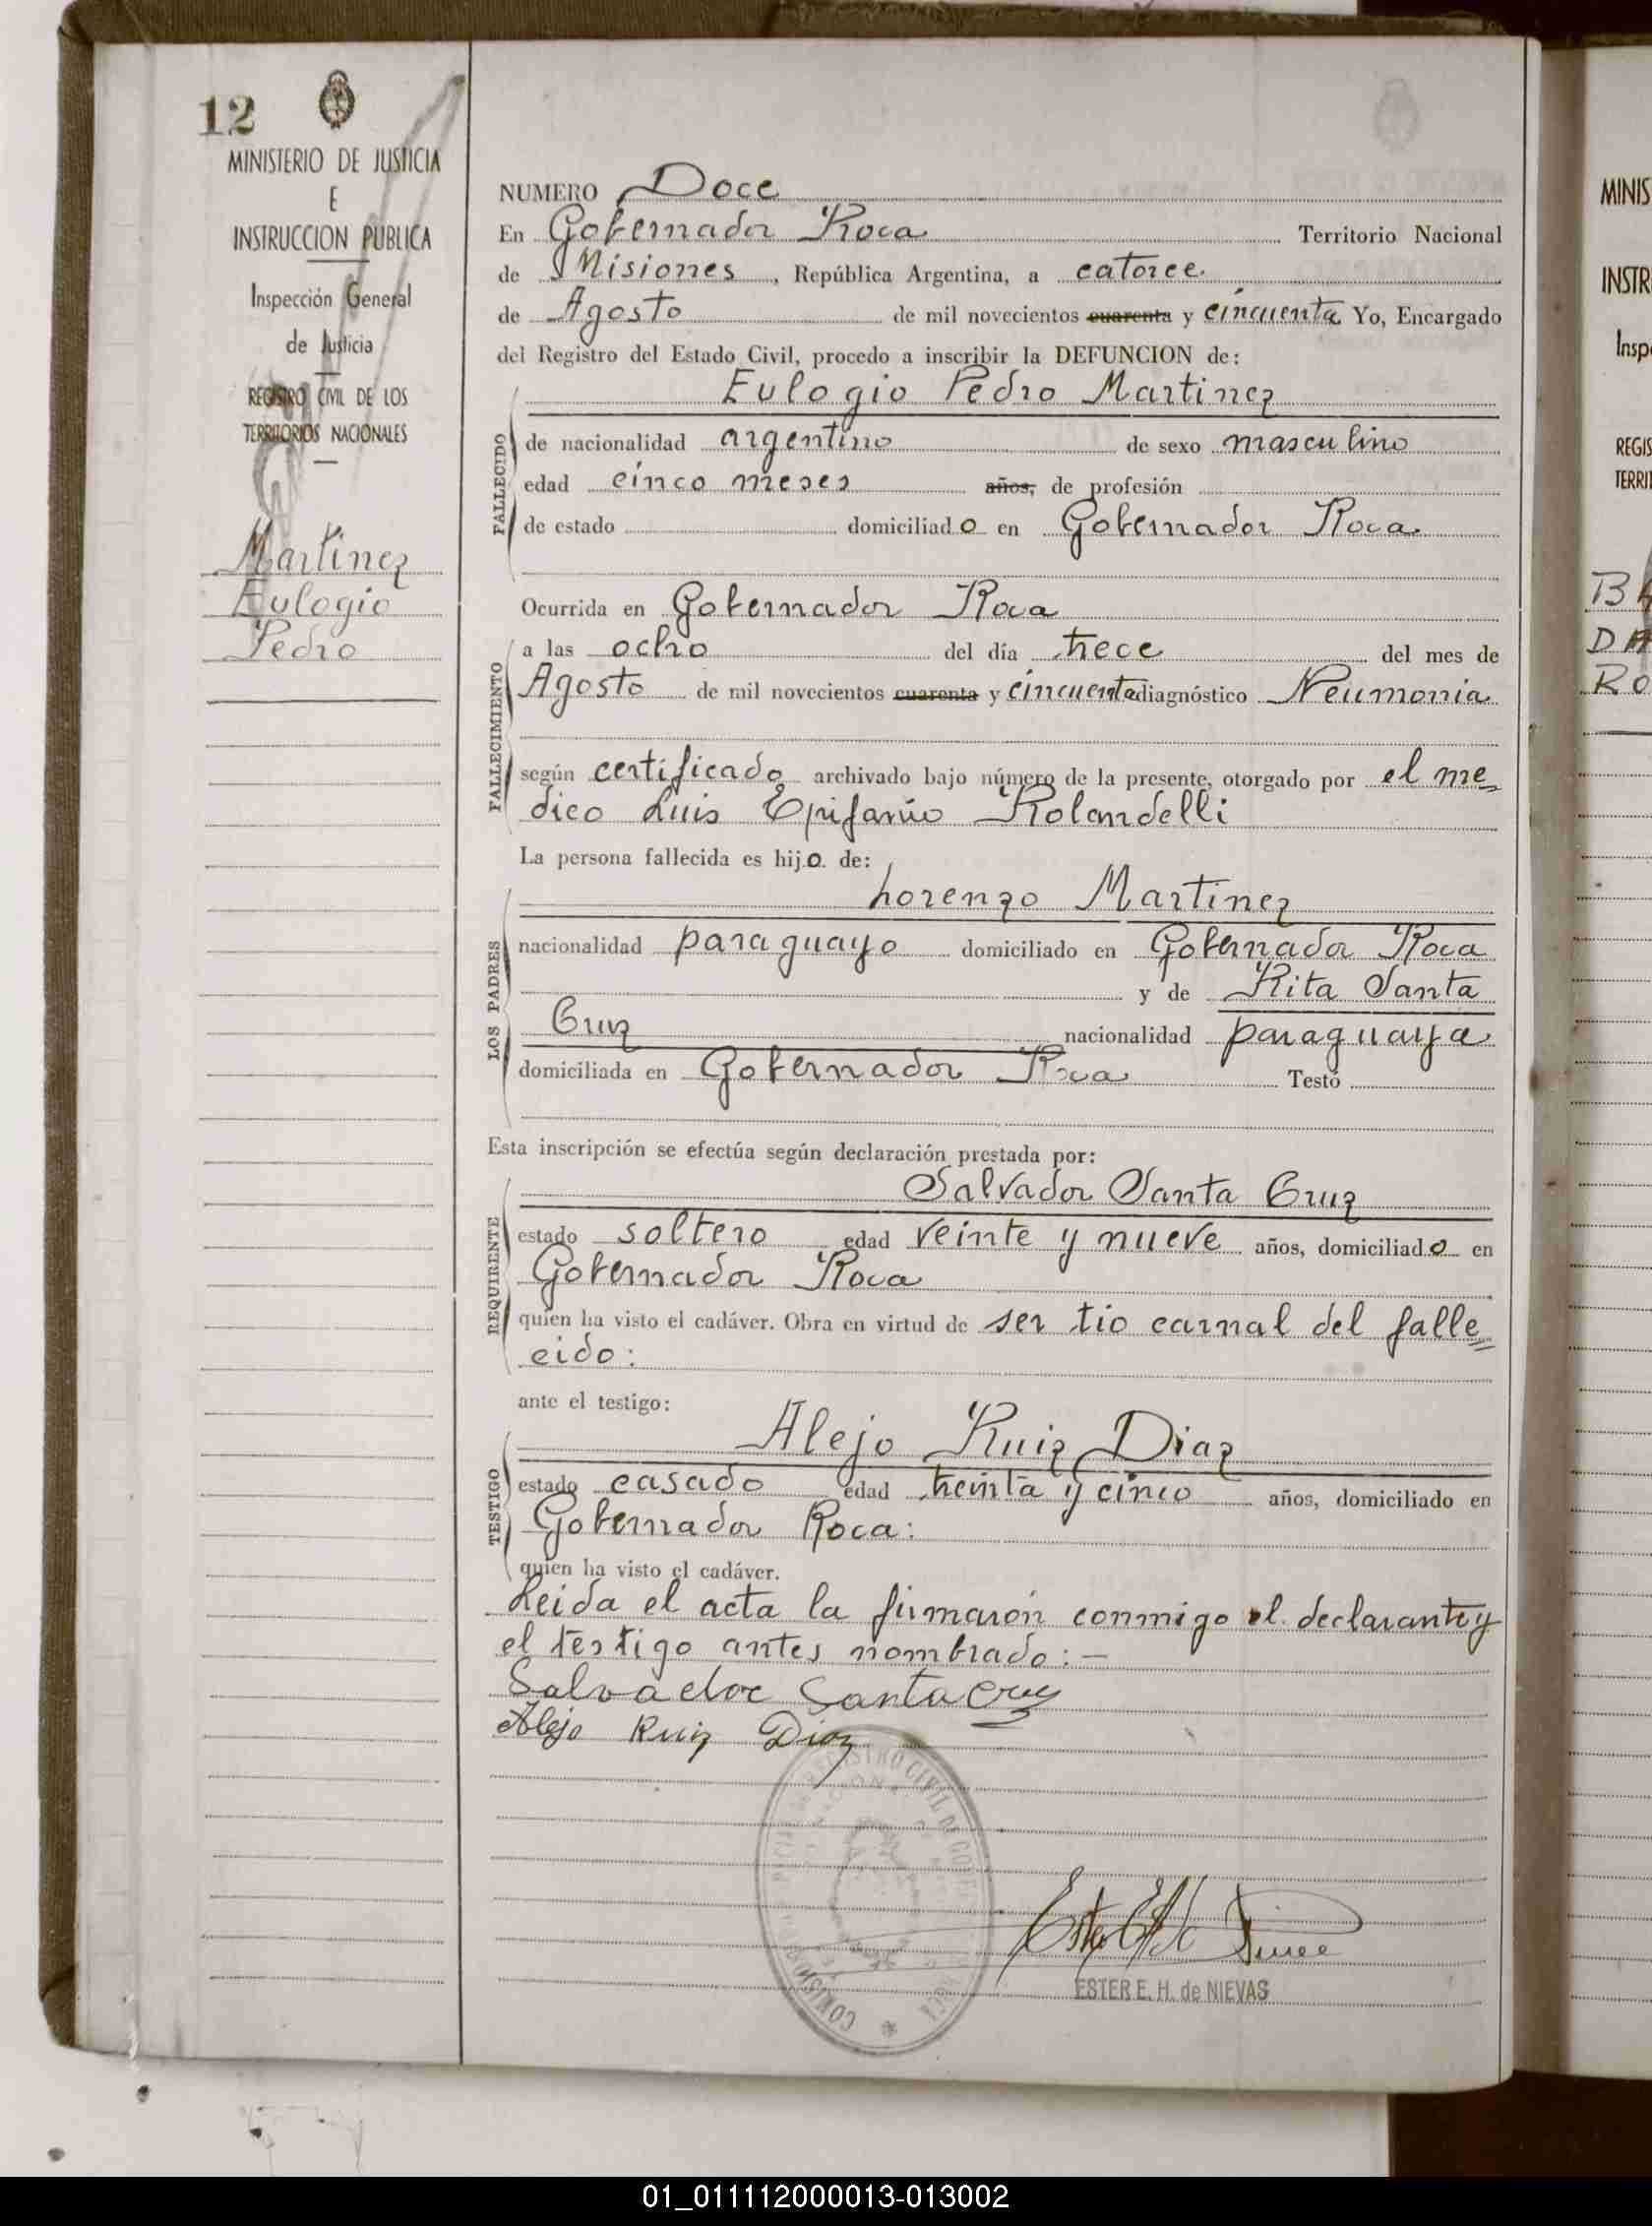 12
MINISTERIO DE JUSTICIA
E
INSTRUCCION PUBLICA
Inspección General
de Justicia
REGISTRO CIVIL DE LOS
TERRITORIOS NACIONALES
Martinez
Eulogio
Pedro
NUMERO Doce
En Gobernador Roca Territorio Nacional
de Misiones, República Argentina, a catorce.
de Agosto de mil novecientos cuarenta y cincuenta Yo, Encargado
del Registro del Estado Civil, procedo a inscribir la DEFUNCION de:
FALLECIDO
Eulogio Pedro Martinez
de nacionalidad argentino de sexo masculino
edad cinco meses años, de profesión
de estado domiciliado en Gobernador Roca.
Ocurrida en Gobernador Roca
FALLECIMIENTO
a las ocho del día trece del mes de
Agosto de mil novecientos cuarenta y cincuenta diagnóstico Neumonia
según certificado archivado bajo número de la presente, otorgado por el me=
dico Luis Epifanio Rolandelli
La persona fallecida es hijo de:
LOS PADRES
Lorenzo Martinez
nacionalidad paraguayo domiciliado en Gobernador Roca
y de Rita Santa
Cruz nacionalidad paraguaya
domiciliada en Gobernador Roca Testó
Esta inscripción se efectúa según declaración prestada por:
REQUIRENTE
Salvador Santa Cruz
estado soltero edad veinte y nueve años, domiciliado en
Gobernador Roca
quien ha visto el cadáver. Obra en virtud de ser tio carnal del falle=
cido:
ante el testigo:
TESTIGO
Alejo Ruiz Diaz
estado casado edad treinta y cinco años, domiciliado en
Gobernador Roca:
quien ha visto el cadáver.
Leida el acta la firmaron conmigo el declarante y
el testigo antes nombrado:—
Salvador Santa Cruz
Alejo Ruiz Diaz
REGISTRO CIVIL DE
ESTER E. H. de NIEVAS
MINIS
INSTR
Insp
REGIS
TERRI
01_011112000013-013002